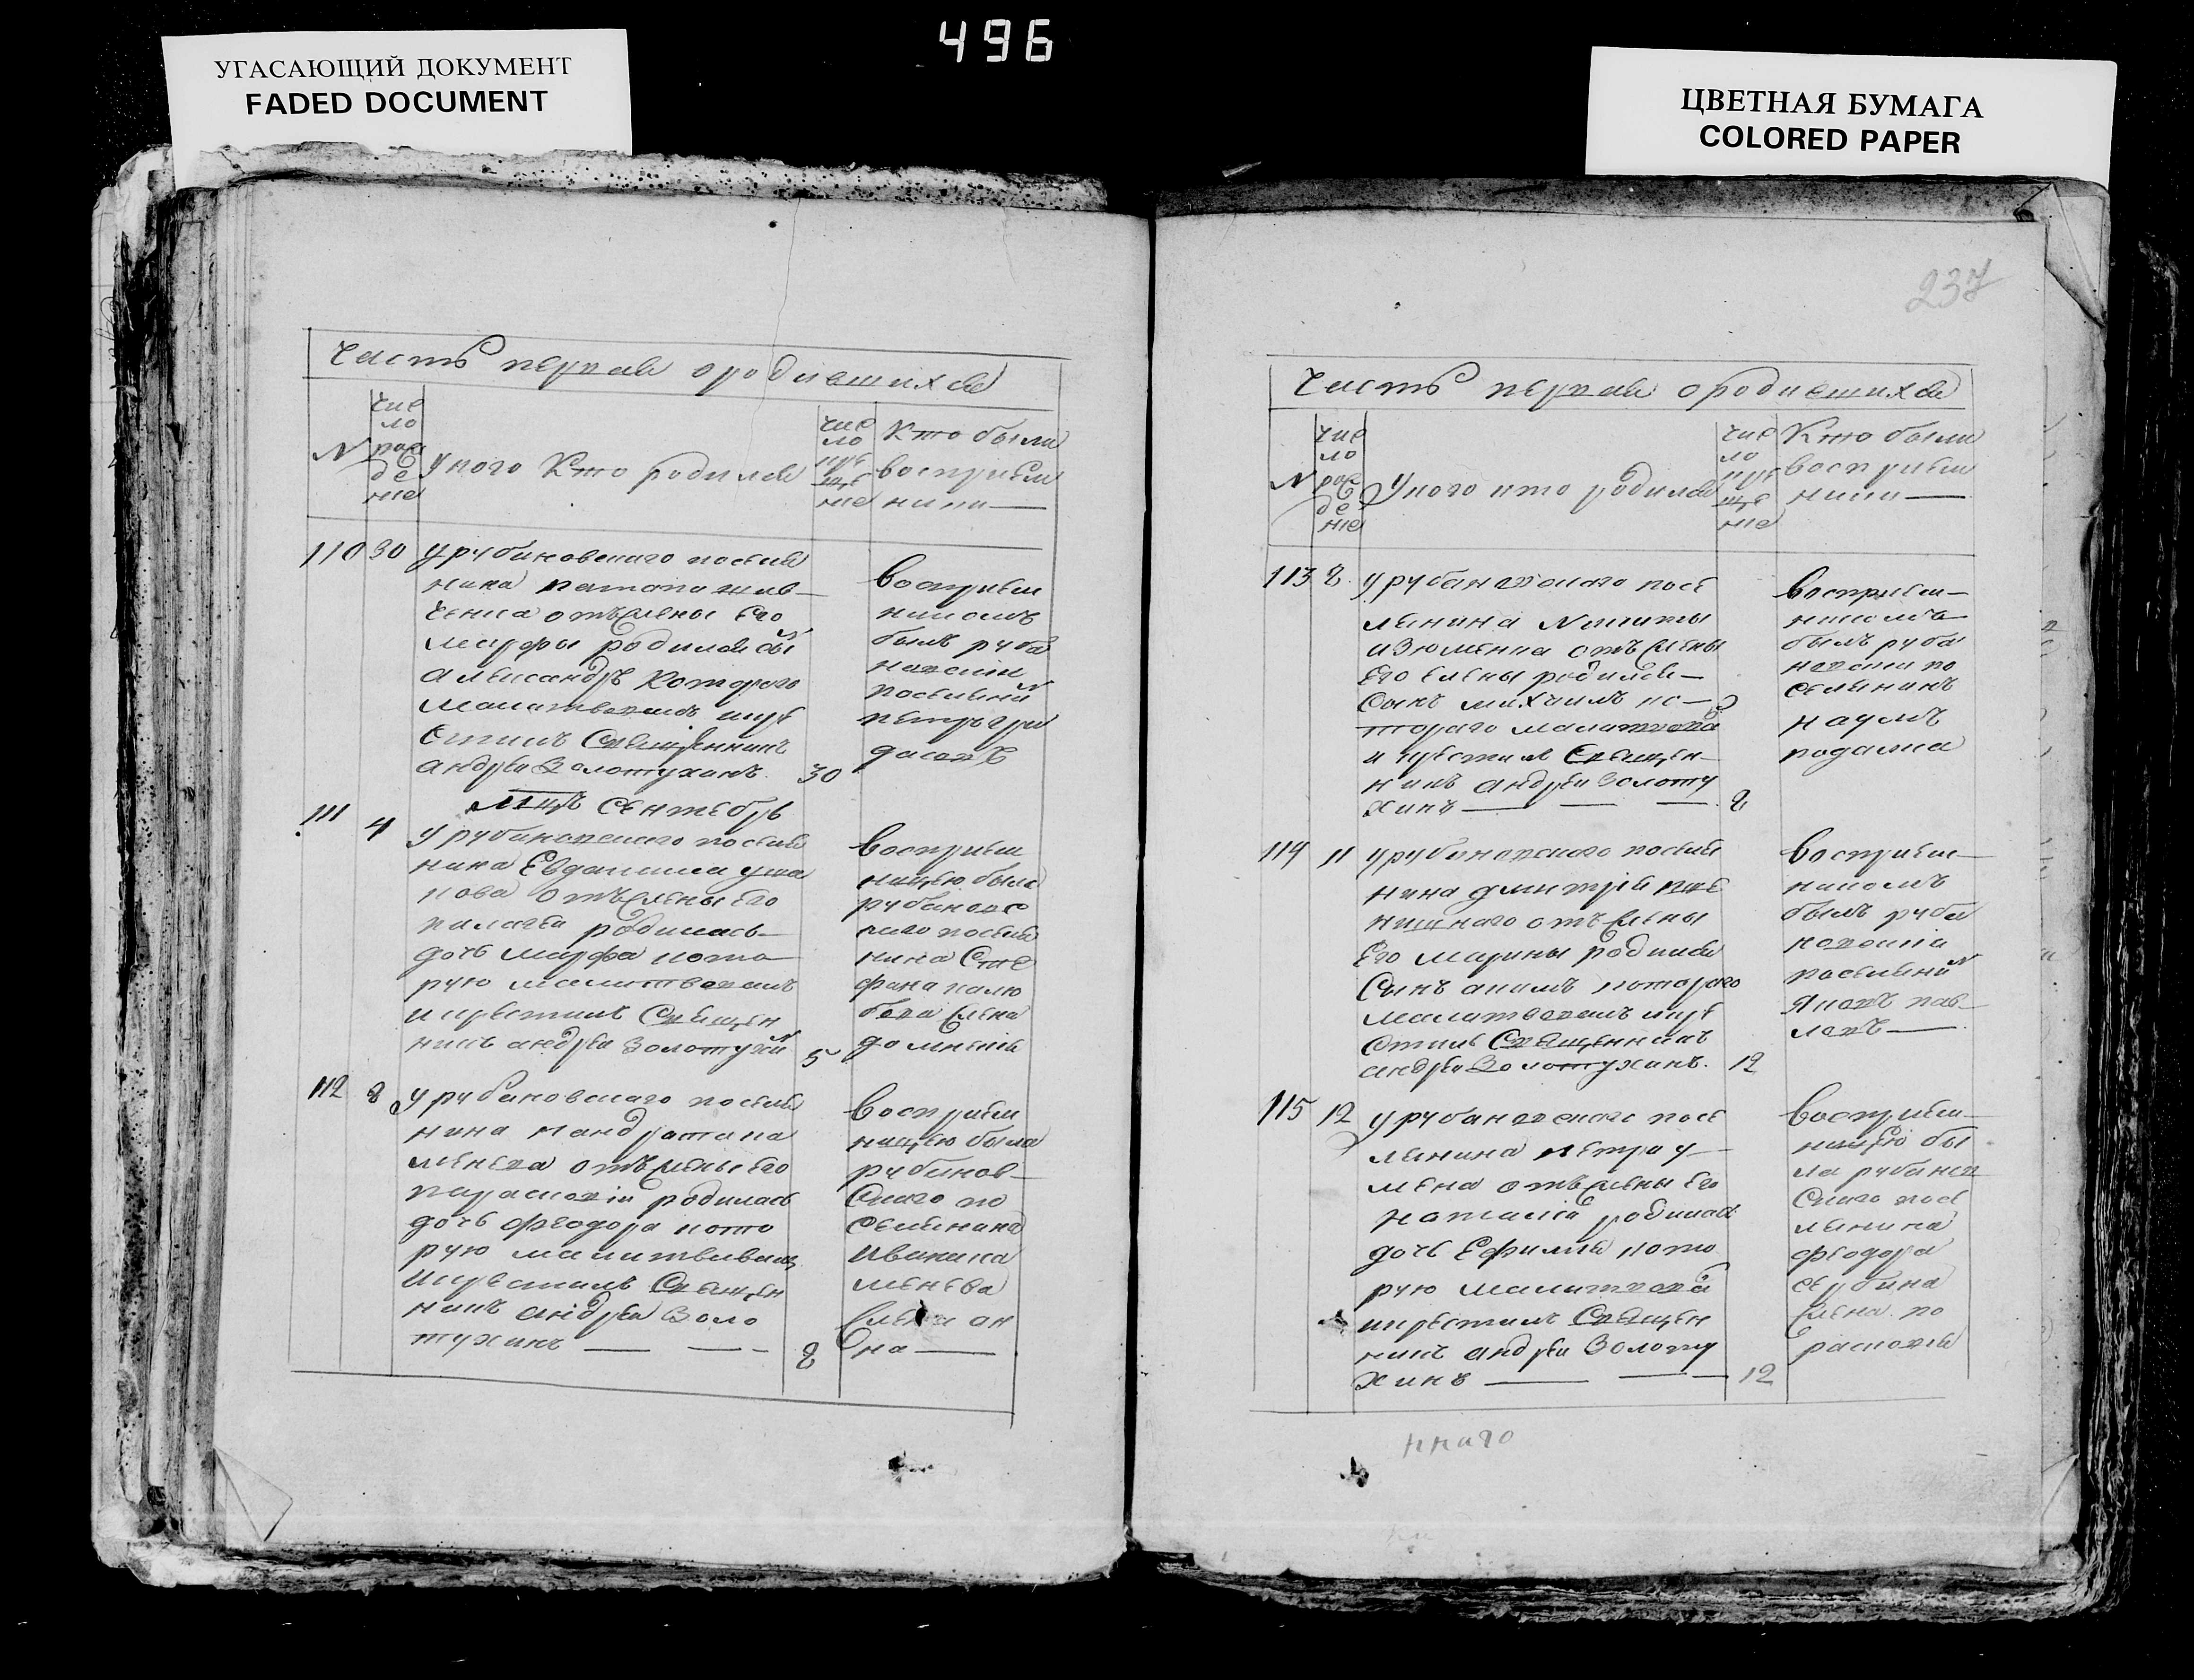 496
УГАСАЮЩИЙ ДОКУМЕНТ
FADED DOCUMENT
ЦВЕТНАЯ БУМАГА
COLORED PAPER
Часть первая о родившихся
N
чис
ло
рож
де
ние
У кого кто родился
чис
ло
кре
ще
ние
Кто были
восприем
ники
110 30
у рубановского поселя
нина
от жены его
марфы родился сын
александръ которого
молитвовалъ и кре
стилъ священникъ
андрей золотухинъ 30
восприем
никомъ
былъ руба
новский
поселянин
петръ гри
111 4
мцъ сентебрь
у рубановского поселя
нина Евдокима
от жены его
пелагеи родилась
дочь марфа кото
рую молитвовалъ
и крестилъ священ
никъ андрей золотухин 5
восприем
ницею была
рубановс
каго поселя
нина Сте
фана
жена
112 8
у рубановского поселя
нина
от жены его
параскови родилась
дочь феодора кото
рую молитвовалъ
и крестилъ священ
никъ андрей золо
тухинъ 8
восприем
ницею была
рубанов
скаго по
селянина
жена ан
на
237
Часть первая о родившихся
N
чис
ло
рож
де
ние
У кого кто родился
чис
ло
кре
ще
ние
Кто были
восприем
ники
113 8
у рубановского посе
лянина никиты
от жены
его елены родился
сынъ михаилъ ко
тораго молитвова
и крестилъ священ
никъ андрей золоту
хинъ 8
восприем
никомъ
былъ руба
новский по
селянинъ
наумъ
114 11
у рубановского поселя
нина дмитрия пше
нишнаго от жены
его марины родился
сынъ акимъ котораго
молитвовалъ и кре
стилъ священникъ
андрей золотухинъ 12
восприем
никомъ
былъ руба
новский
поселянин
яковъ пав
ловъ
115 12
у рубановского посе
лянина петра у
от жены его
наталии родилась
дочь Ефимия кото
рую молитвова
и крестилъ священ
никъ андрей золоту
хинъ 12
восприем
ницею бы
ла рубанов
скаго посе
лянина
феодора
жена па
расковия